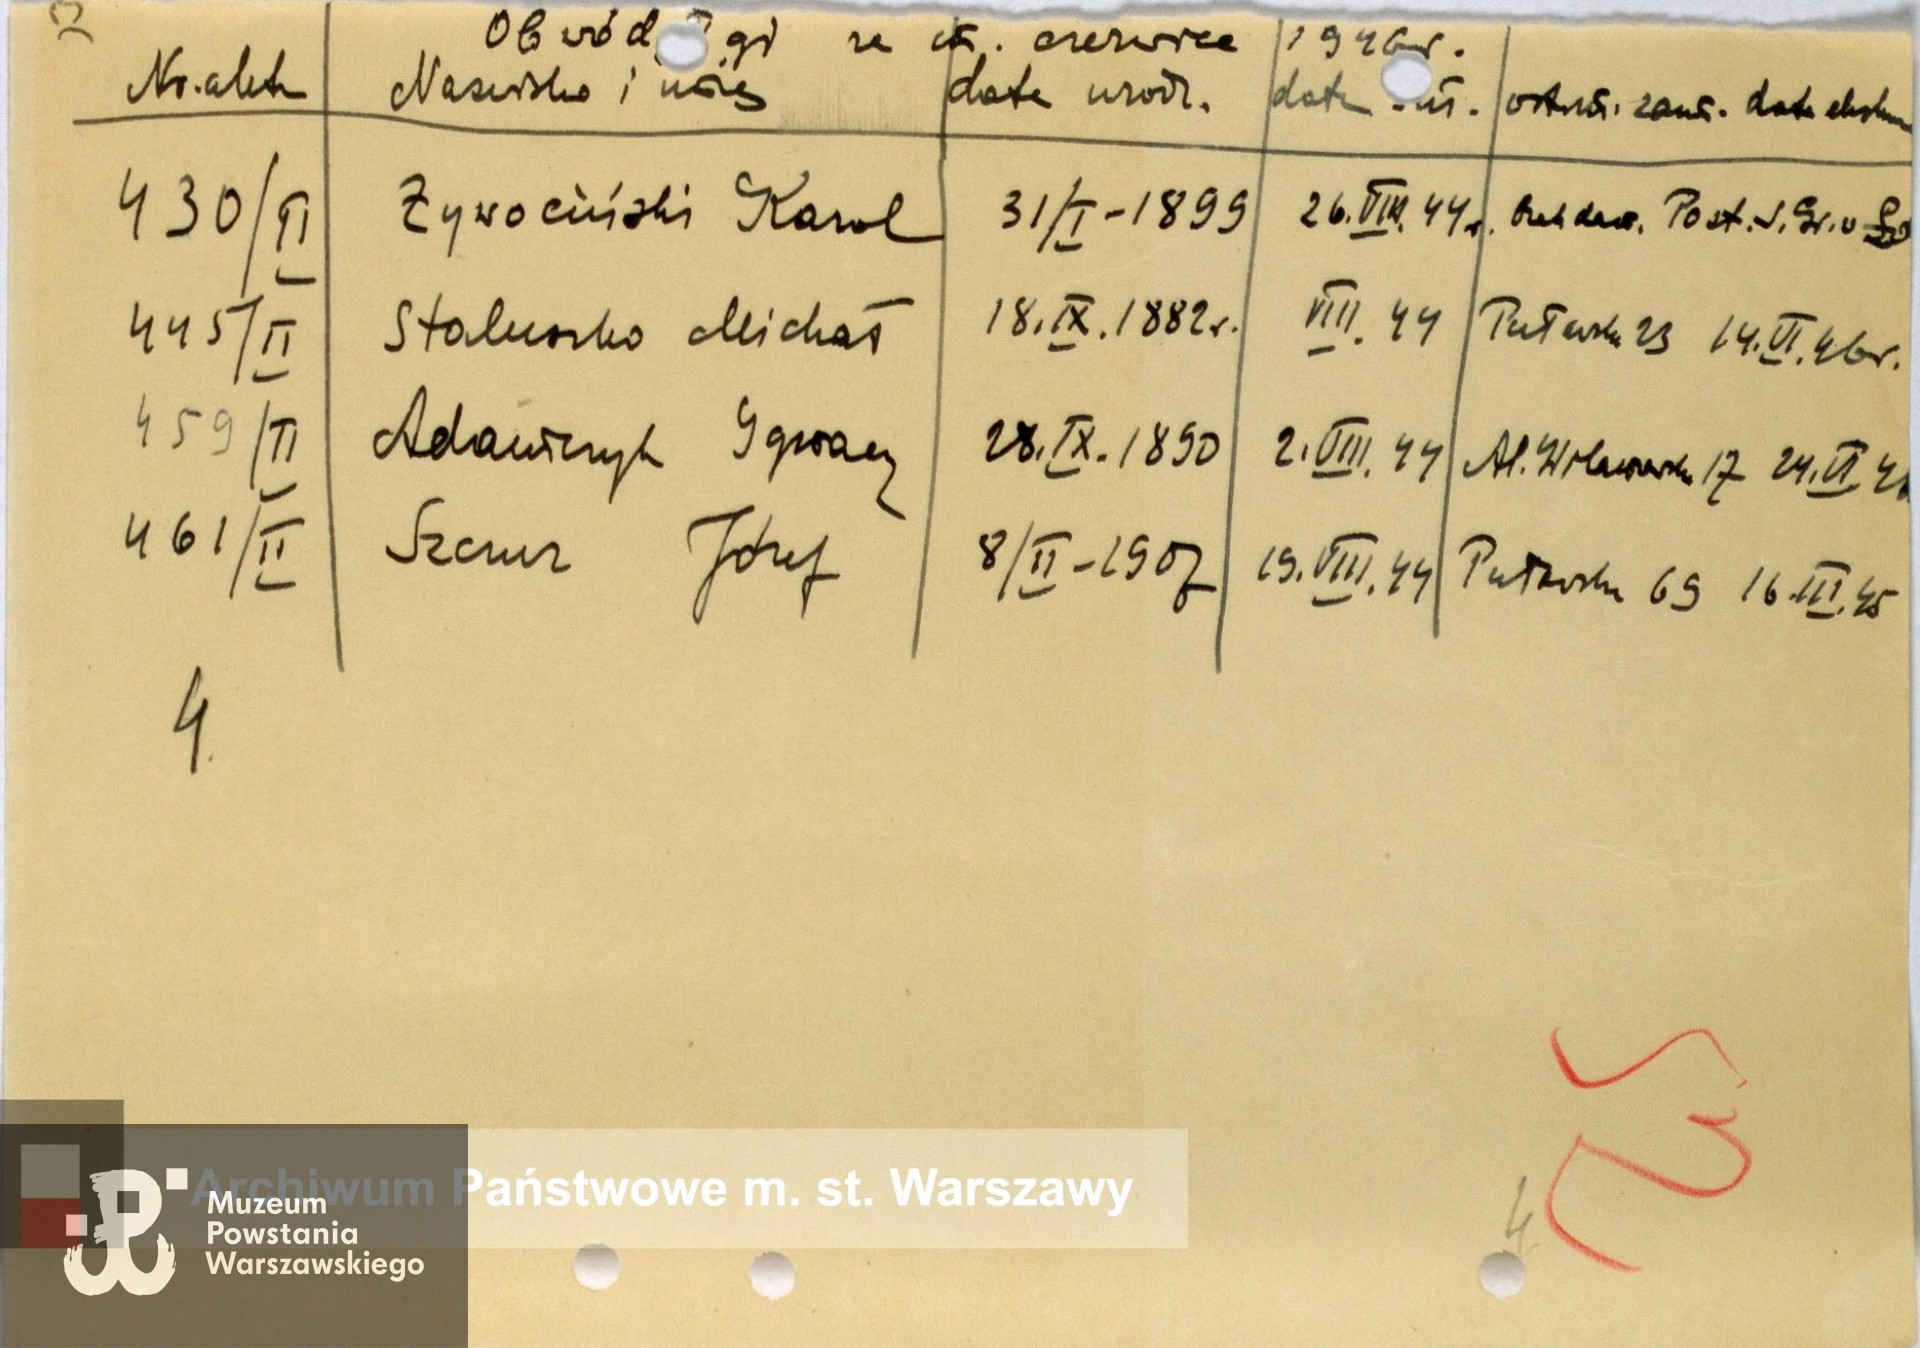 Obwód gi za m. czerwiec 1946 r.
Nr. aktu Nazwisko i imię data urodz. data śm. ostatn. zam. data eksh
430/II Żywociński Karol 31/I-1899 26.VIII.44 r. Post.
445/II Staluszko Michał 18.IX.1882 r. VIII.44 Puławska 23 14.VI.46 r.
459/II Adamczyk Ignacy 28.IX.1890 2.VIII.44 Al. Wilanowska 17 24.VI 4
461/II Szczur Józef 8/II-1907 19.VIII.44 Puławska 69 16.III.45
4.
4
Archiwum Państwowe m. st. Warszawy
Muzeum
Powstania
Warszawskiego